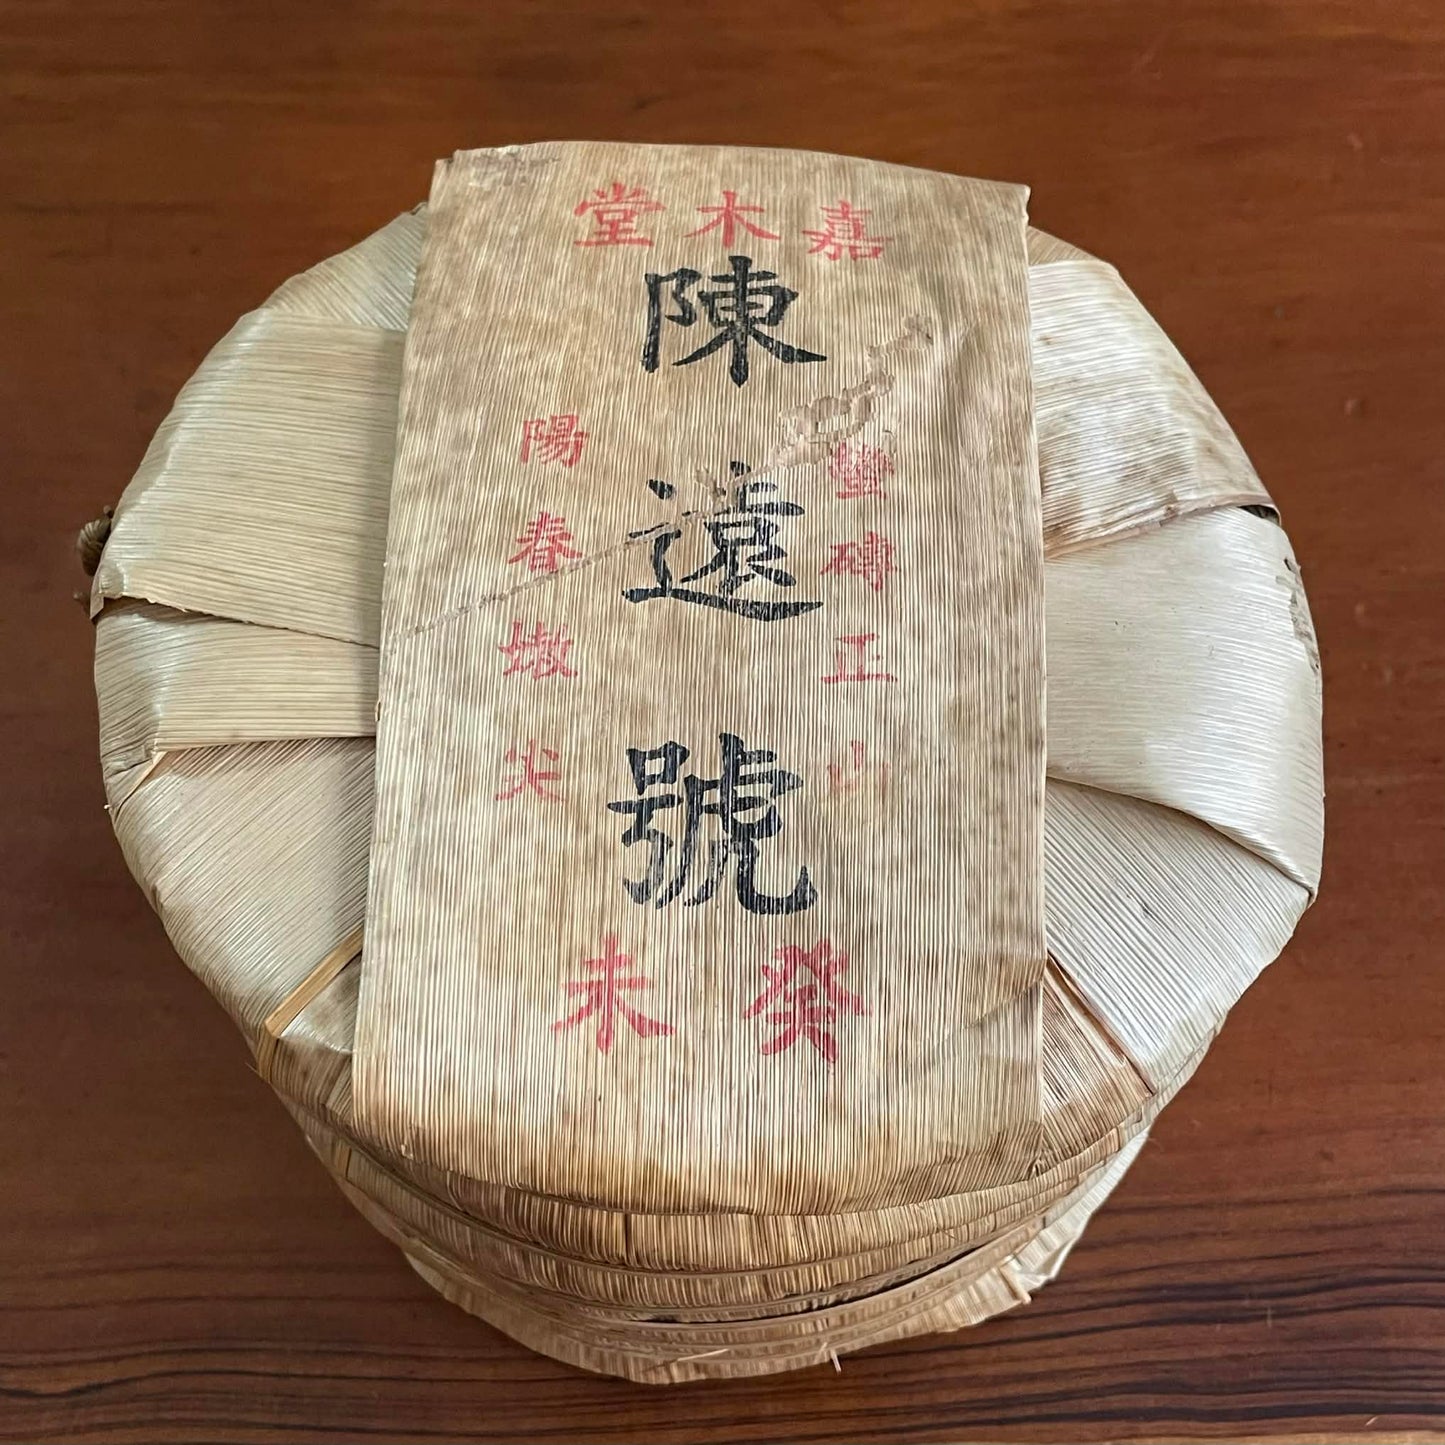 嘉木堂
蠻磚正山
陳遠號
陽春嫩尖
癸未